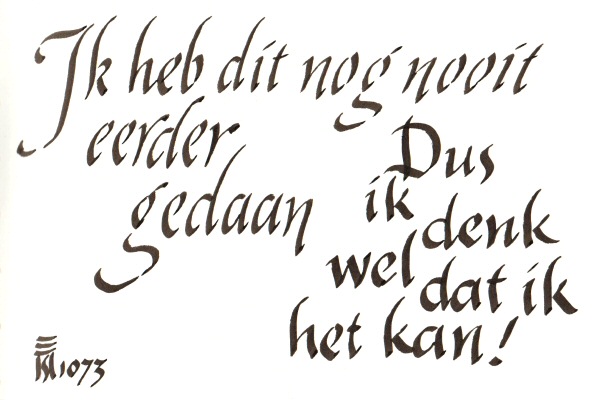 Ik heb dit nog nooit
eerder
gedaan
Dus
ik
denk
wel
dat ik
het kan!
1073